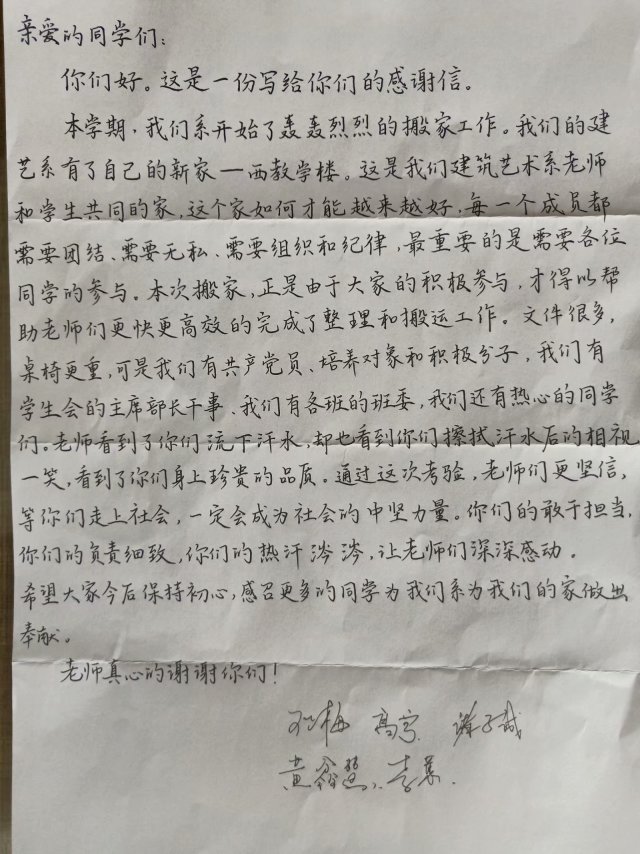 亲爱的同学们:
你们好。这是一份写给你们的感谢信。
本学期,我们系开始了轰轰烈烈的搬家工作。我们的建
艺系有了自己的新家一西教学楼。这是我们建筑艺术系老师
和学生共同的家,这个家如何才能越来越好,每一个成员都
需要团结、需要无私、需要组织和纪律,最重要的是需要各位
同学的参与。本次搬家,正是由于大家的积极参与,才得以帮
助老师们更快更高效的完成了整理和搬运工作。文件很多,
桌椅更重,可是我们有共产党员、培养对象和积极分子,我们有
学生会的主席部长干事、我们有各班的班委,我们还有热心的同学
们。老师看到了你们流下汗水,却也看到你们擦拭汗水后的相视
一笑,看到了你们身上珍贵的品质。通过这次考验,老师们更坚信,
等你们走上社会,一定会成为社会的中坚力量。你们的敢于担当,
你们的负责细致,你们的热汗涔涔,让老师们深深感动。
希望大家今后保持初心,感召更多的同学为我们系为我们的家做出
奉献。
老师真心的谢谢你们!
梅 高
黄鑫慧 李